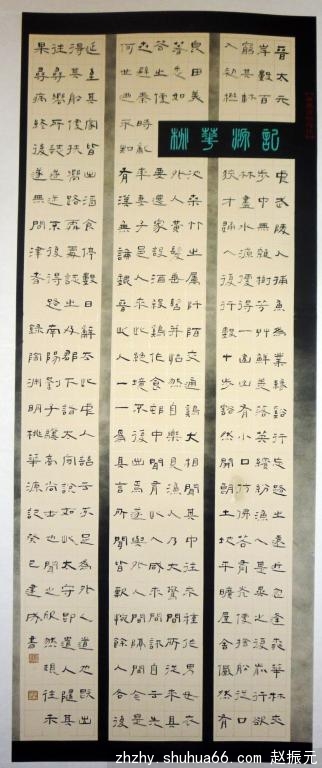 桃華源記
晉太元中武陵人捕魚為業緣谿行忘路之遠近忽逢桃華林夾
岸數百步中無雜樹芳艸鮮美落英繽紛漁人甚異之復前行欲
窮其林林盡水源便得一山山有小口仿佛若有光便舍船從口
入初極狹才通人復行數十步豁然開朗土地平曠屋舍儼然有
良田美池桑竹之屬阡陌交通鷄犬相聞其中往來種作男女衣
著悉如外人黃髮垂髫并怡然自樂見漁人乃大驚問所從來具
答之便要還家設酒殺鷄作食邨中聞有此人咸來問訊自云先世
避秦時亂率妻子邑人來此絕境不復出焉遂與外人間隔問今是
何世乃不知有漢無論魏晉此人一一為具言所聞皆歎惋餘人各復
延至其家皆出酒食停數日辭去此中人語云不足為外人道也既出
得其船便扶向路處處誌之及郡下詣太守說如此太守即遣人隨其
往尋向所誌遂迷不復得路南陽劉子驥高尚士也聞之欣然規往未
果尋病終後遂無問津者 錄陶淵明桃華源記癸巳建成書
zhzhy.shuhua66.com 赵振元